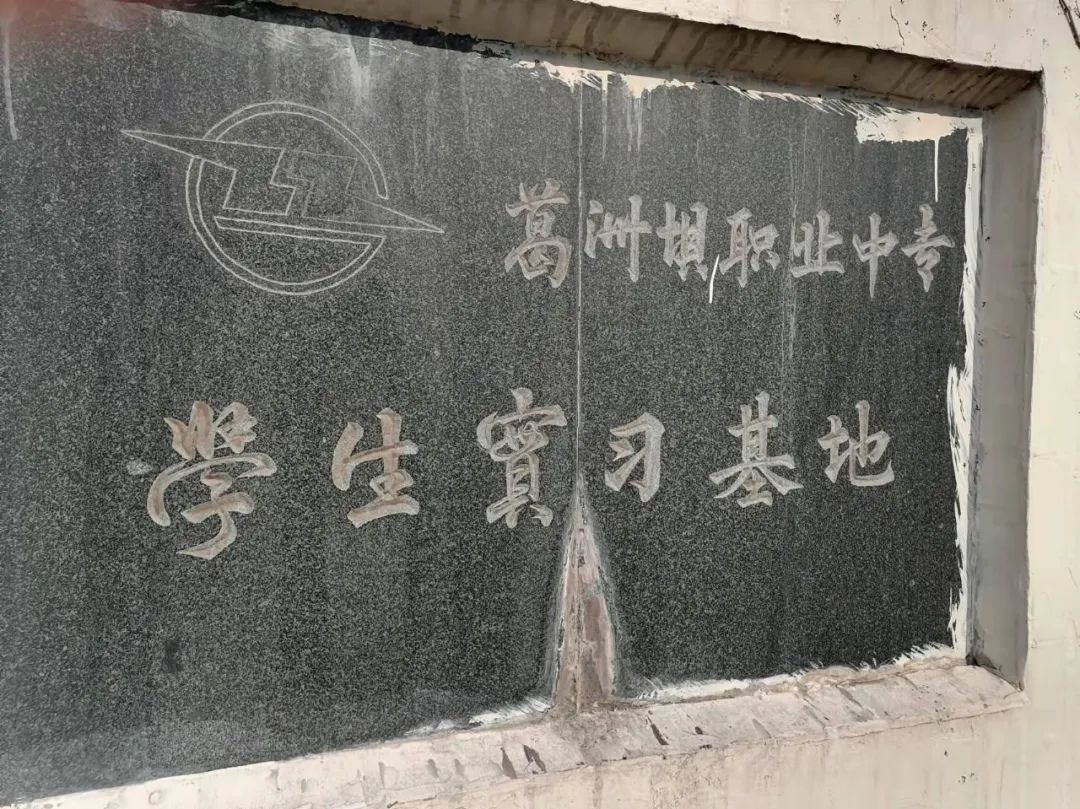 葛洲坝职业中专
學生實习基地